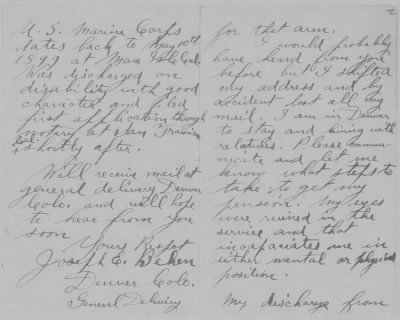 2
for that arm.
I would probably
have heard from you
before but I shifted
my address and by
accident lost all my
mail. I am in Denver
to stay and living with
relatives. Please commun-
icate and let me
know what steps to
take to get my
pension. My eyes
were ruined in the
service and that
incapacites me in
either mental or physical
position.
My discharge from
U.S. Marine Corps
dates back to May 10th
at Mare Isle Cal.
Was discharged on
disability with good
character and filed
first application through
notary at San Francisco
Cal. shortly after.
Will receive mail at
general delivery Denver
Colo. and will hope
to hear from you
soon
Yours Respct
Joseph E.
Denver Colo.
General Delivery